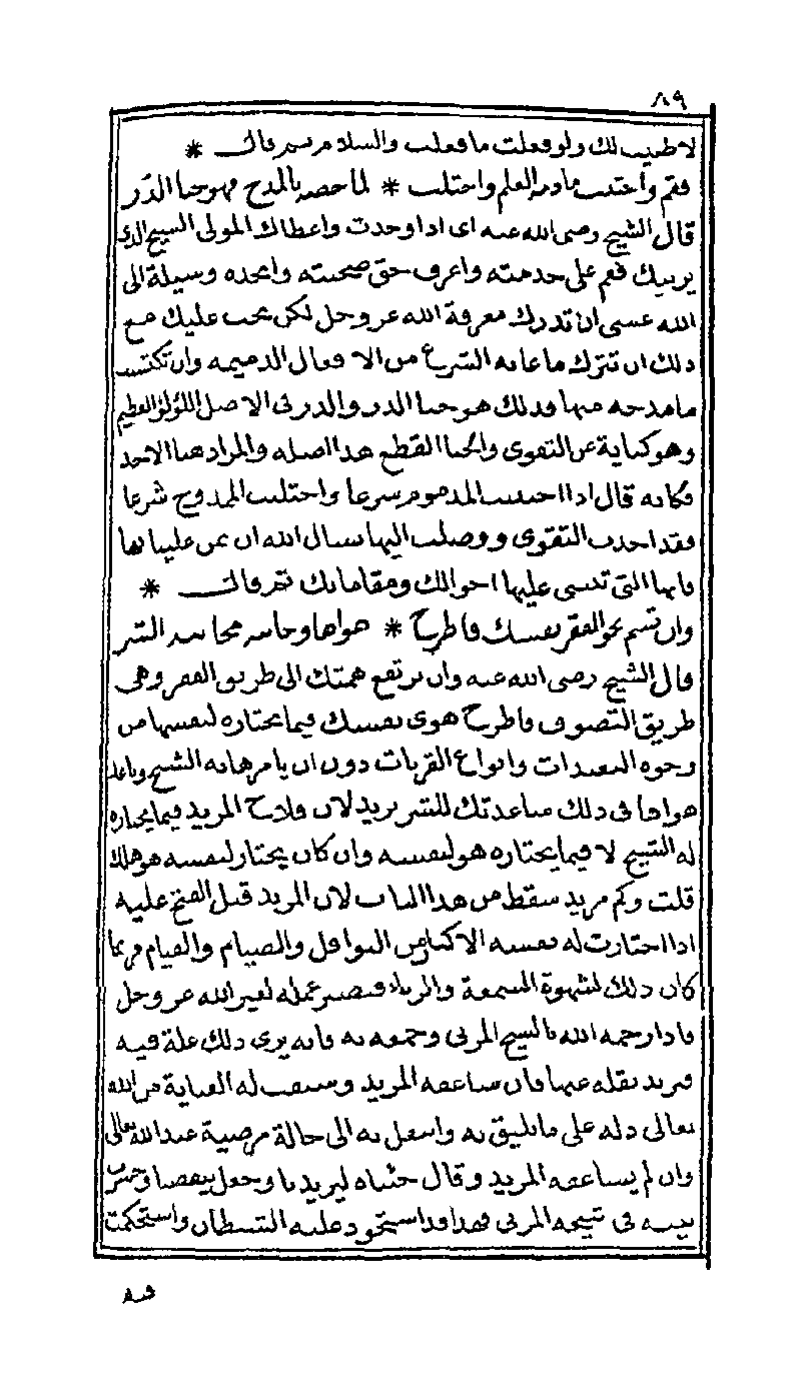 ٨٩
لا طبيب لك ولو فعلت ما فعلت والسلام ثم قال *
فقم واجتنب ماذمه العلم واجتلب * لما خصه بالمدح فهو جنا الدر
قال الشيخ رضي الله عنه اي اذا وجدت واعطاك المولى الشيخ الذي
يربيك فقم على خدمته واعرف حق صحبته واتخذه وسيلة الى
الله عسى ان تدرك معرفة الله عز وجل لكن يجب عليك مع
ذلك ان تترك ما عابه الشرع من الافعال الذميمة وان تكتسب
ما مدحه منها فذلك هو جنا الدر والدر في الاصل اللؤلؤ العظيم
وهو كناية عن التقوى والجنا القطع هذا اصله والمراد هنا الاخذ
فكانه قال اذا اجتنبت المذموم شرعا واجتلبت الممدوح شرعا
فقد اخذت التقوى ووصلت اليها نسال الله ان يمن علينا بها
فانها التي تبنى عليها احوالك ومقاماتك ثم قال *
وان تسم نحو الفقر نفسك فاطرح * هواها وجانبه مجانبة الشر
قال الشيخ رضي الله عنه وان ترتفع همتك الى طريق الفقر وهي
طريق التصوف فاطرح هوى نفسك فيما يختاره لنفسها من
وجوه التعبدات وانواع القربات دون ان يامرها به الشيخ وباعد
هواها في ذلك مباعدتك للشر يريد لان فلاح المريد فيما يختاره
له الشيخ لا فيما يختاره هو لنفسه وان كان يختار لنفسه هو هلك
قلت وكم مريد سقط من هذا الباب لان المريد قبل الفتح عليه
اذا اختارت له نفسه الاكثار من النوافل والصيام والقيام فربما
كان ذلك لشهوة السمعة والرياء فيصير عمله لغير الله عز وجل
فاذا رحمه الله بالشيخ المربي وجمعه به فانه يرى ذلك علة فيه
فيريد نقله عنها فان ساعفه المريد وسبقت له العناية من الله
تعالى دله على ما يليق به وانتقل به الى حالة مرضية عند الله تعالى
وان لم يساعفه المريد وقال جئناه ليزيدنا وجعل ينقصنا وخسرت
نيته في شيخه المربي فهذا قد استحوذ عليه الشيطان واستحكمت